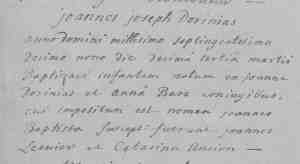 joannes joseph Dorinias
anno domini millesimo septingentesimo
decimo nono die decima tertia martii
Baptizavi infantem natum ex joanne
Dorinias et anna Baze conjugibus,
cui impositum est nomen joannes
Baptista suscept fuerunt joannes
et Catarina